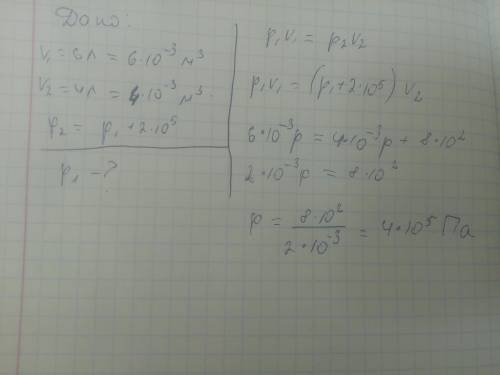 Дано:
V₁ = 6л = 6·10⁻³ м³
V₂ = 4л = 4·10⁻³ м³
p₂ = p₁ + 2·10⁵
p₁ - ?
p₁V₁ = p₂V₂
p₁V₁ = (p₁ + 2·10⁵) V₂
6·10⁻³p = 4·10⁻³p + 8·10²
2·10⁻³p = 8·10²
p = 8·10² / 2·10⁻³ = 4·10⁵ Па